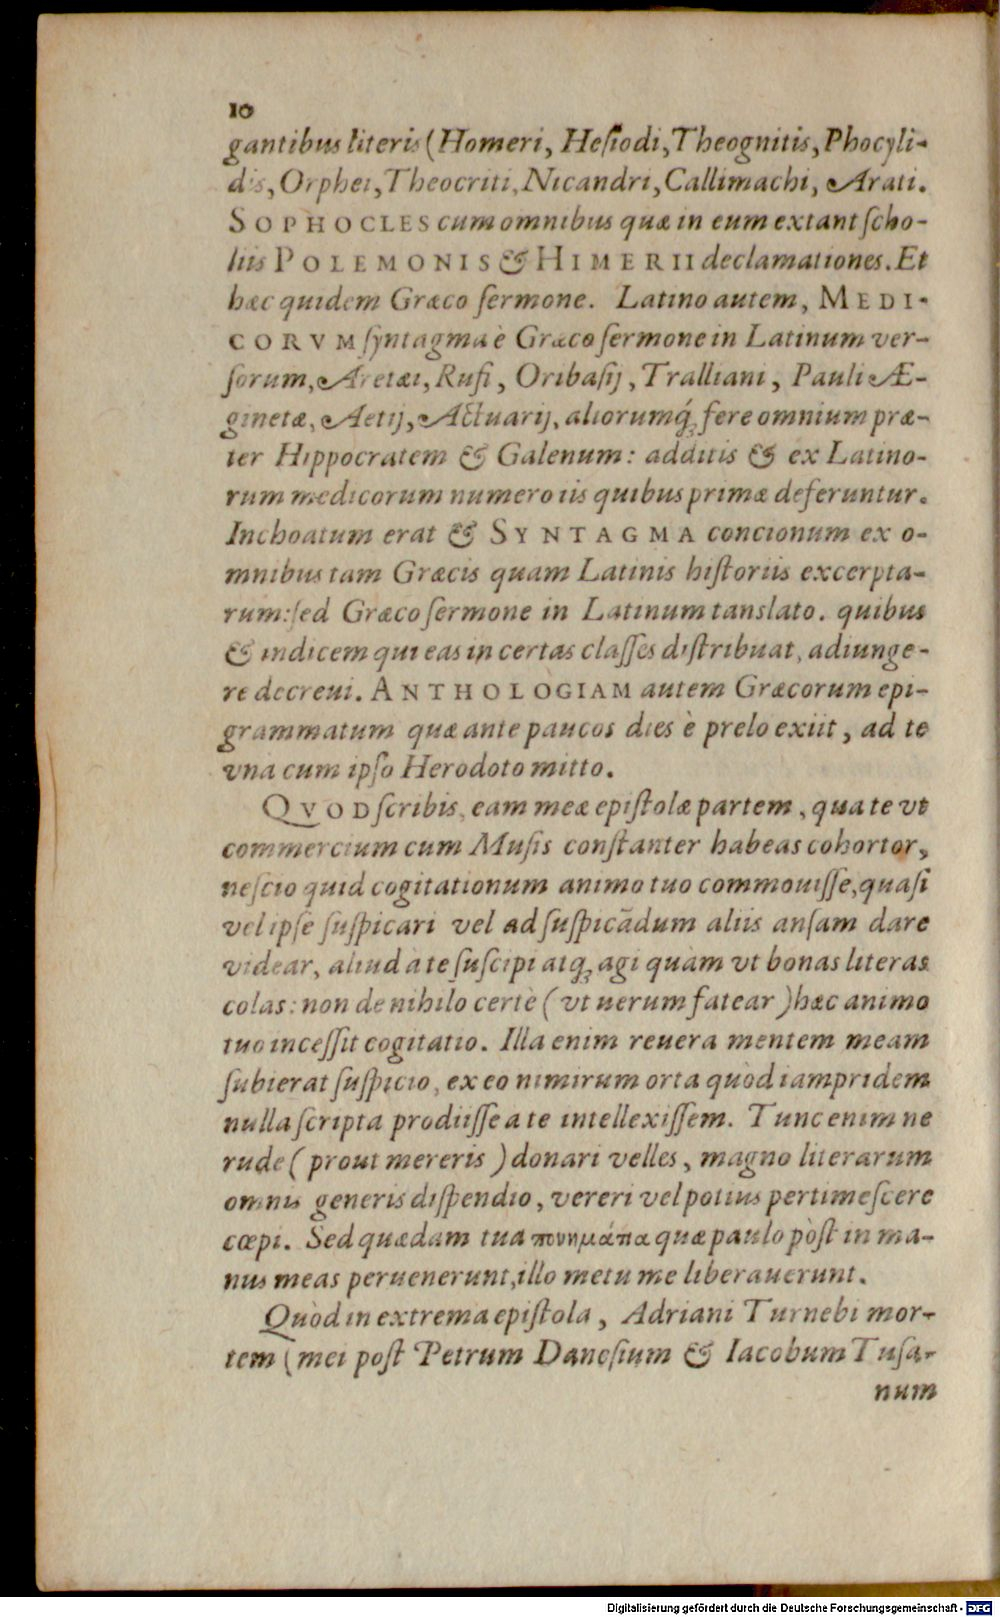 10
gantibus literis (Homeri, Heſiodi, Theognitis, Phocyli-
dis, Orphei, Theocriti, Nicandri, Callimachi, Arati.
SOPHOCLES cum omnibus quæ in eum extant ſcho-
liis POLEMONIS & HIMERII declamationes. Et
hæc quidem Græco ſermone. Latino autem, MEDI-
CORVM ſyntagma è Græco ſermone in Latinum ver-
ſorum, Aretæi, Rufi, Oribaſij, Tralliani, Pauli Æ-
ginetæ, Aetij, Actuarij, aliorumq́; fere omnium præ-
ter Hippocratem & Galenum: additis & ex Latino-
rum medicorum numero iis quibus primæ deferuntur.
Inchoatum erat & SYNTAGMA concionum ex o-
mnibus tam Græcis quam Latinis hiſtoriis excerpta-
rum: ſed Græco ſermone in Latinum tanslato. quibus
& indicem qui eas in certas claſſes diſtribuat, adiunge-
re decreui. ANTHOLOGIAM autem Græcorum epi-
grammatum quæ ante paucos dies è prelo exiit, ad te
vna cum ipſo Herodoto mitto.
QVOD ſcribis, eam meæ epiſtolæ partem, qua te vt
commercium cum Muſis conſtanter habeas cohortor,
neſcio quid cogitationum animo tuo commouiſſe, quaſi
vel ipſe ſuſpicari vel ad ſuſpicãdum aliis anſam dare
videar, aliud à te ſuſcipi atq; agi quàm vt bonas literas
colas: non de nihilo certè (vt uerum fatear) hæc animo
tuo inceſſit cogitatio. Illa enim reuera mentem meam
ſubierat ſuſpicio, ex eo nimirum orta quòd iampridem
nulla ſcripta prodiiſſe a te intellexiſſem. Tunc enim ne
rude (prout mereris) donari velles, magno literarum
omnis generis diſpendio, vereri vel potius pertimeſcere
cœpi. Sed quædam tua ποιημάτια quæ paulo pòſt in ma-
nus meas peruenerunt, illo metu me liberauerunt.
Quòd in extrema epiſtola, Adriani Turnebi mor-
tem (mei poſt Petrum Daneſium & Iacobum Tuſa-
num
Digitalisierung gefördert durch die Deutsche Forschungsgemeinschaft - DFG